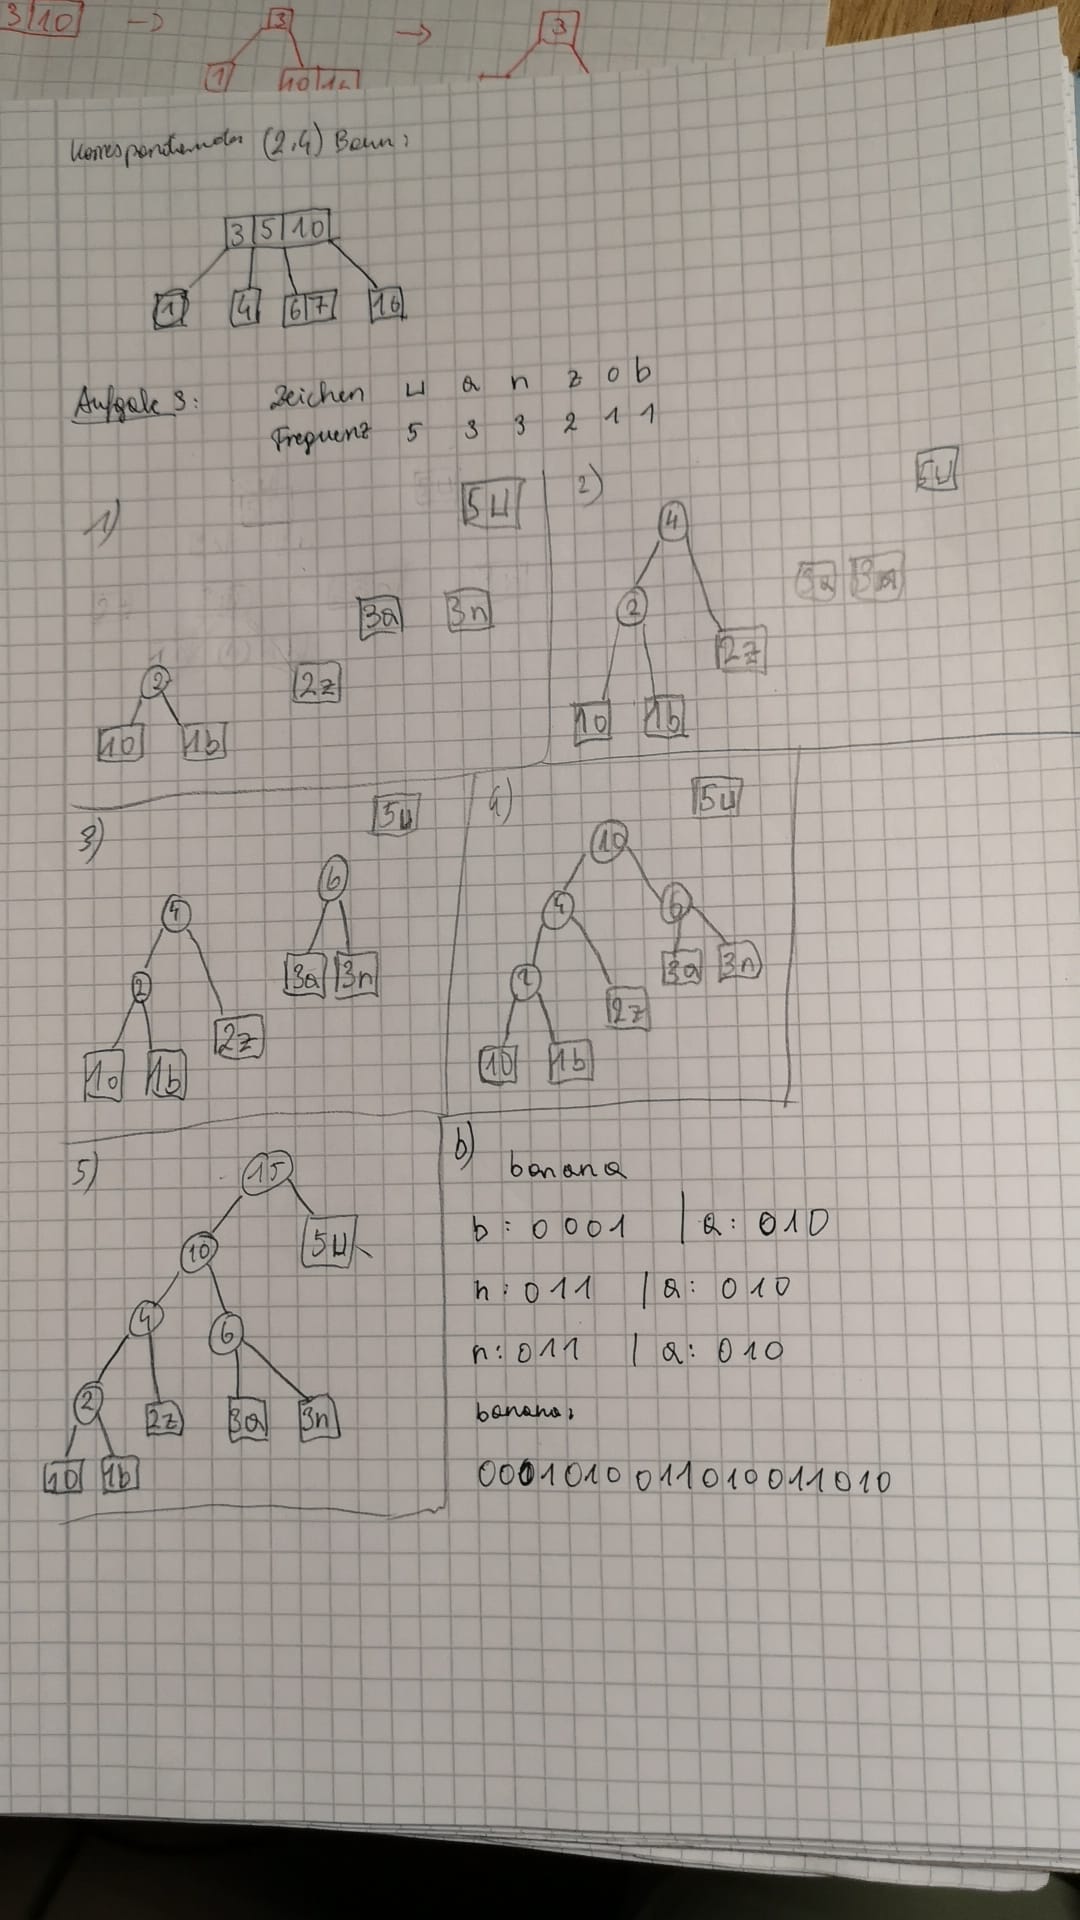 3 10 → 3 → 3
1 10 16
Korrespondierender (2,4) Baum:
3 5 10
1 4 6 7 16
Aufgabe 3: Zeichen ⊔ a n z o b
Frequenz 5 3 3 2 1 1
1)
5⊔
3a 3n
2
2z
1o 1b
2)
5⊔
4
3a 3n
2
2z
1o 1b
3)
5⊔
6
4
3a 3n
2
2z
1o 1b
4)
5⊔
10
4 6
3a 3n
2
2z
1o 1b
5)
15
10 5⊔
4 6
2 2z 3a 3n
1o 1b
b)
banana
b: 0001 | a: 010
n: 011 | a: 010
n: 011 | a: 010
banana:
0001010011010011010